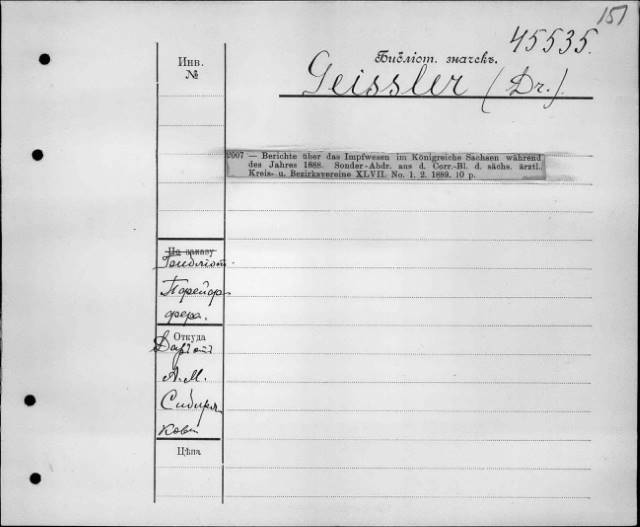 151
45535.
Инв.
№
Библіот. значекъ.
Geissler (Dr.).
2007 — Berichte über das Impfwesen im Königreiche Sachsen während
des Jahres 1888. Sonder-Abdr. aus d. Corr.-Bl. d. sächs. ärztl.
Kreis- u. Bezirksvereine XLVII. No. 1. 2. 1889. 10 p.
По заказу
Библіот.
Порейор-
фера.
Откуда
Даръ отъ
А. М.
Сибиря
кова
Цѣна